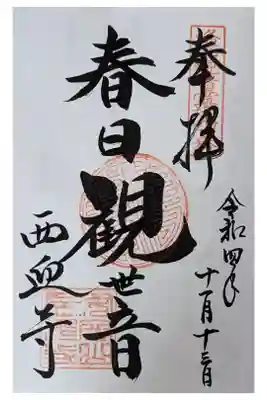 奉拝
令和四年
十一月十三日
春日観世音
西迎寺